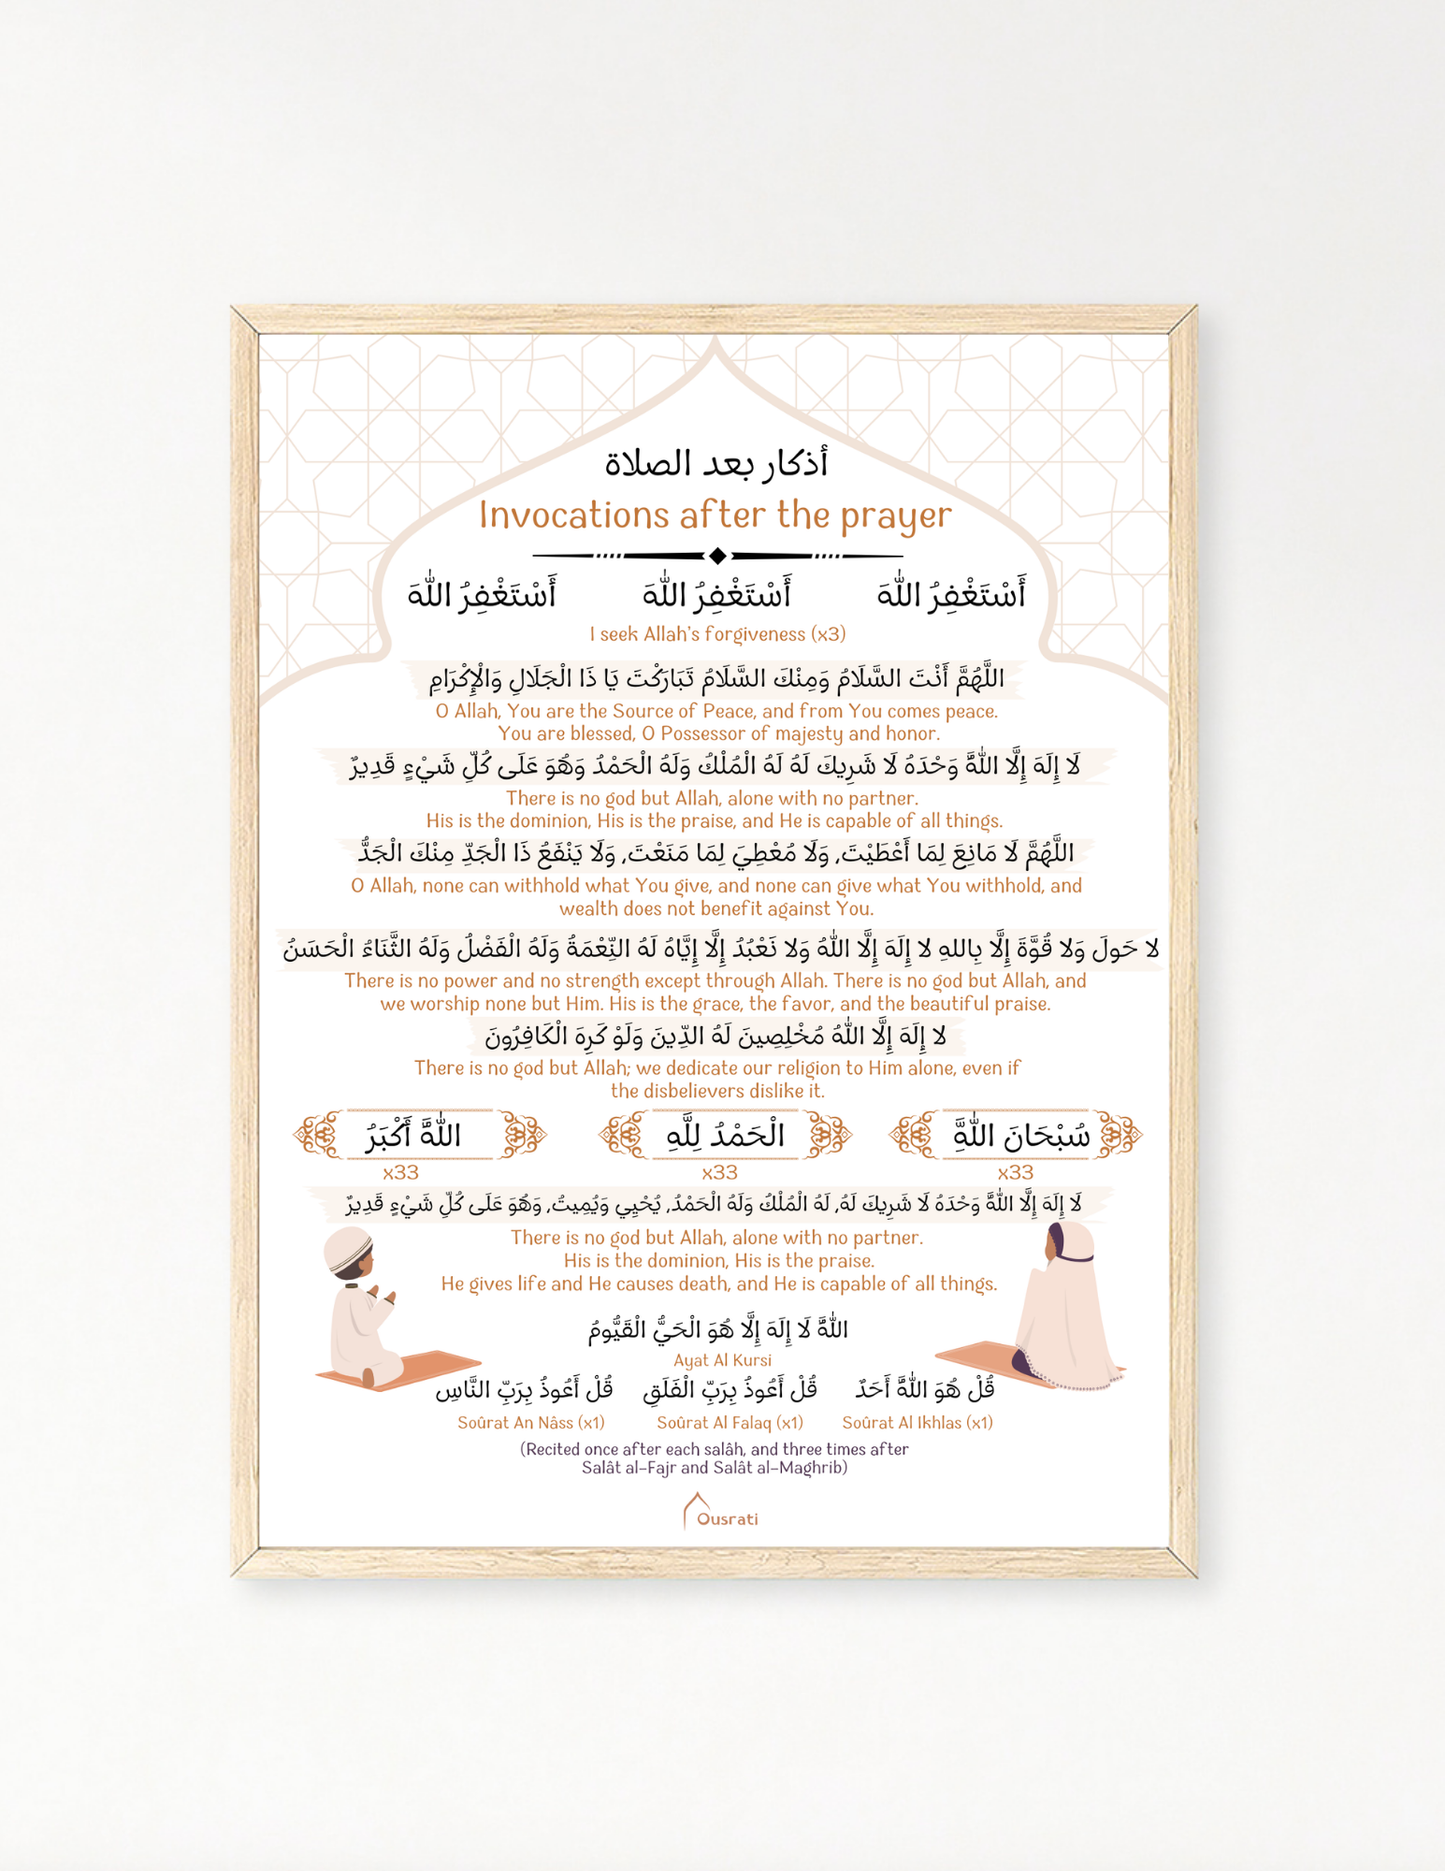 أذكار بعد الصلاة
Invocations after the prayer
أَسْتَغْفِرُ اللّٰهَ أَسْتَغْفِرُ اللّٰهَ أَسْتَغْفِرُ اللّٰهَ
I seek Allah's forgiveness (x3)
اللَّهُمَّ أَنْتَ السَّلَامُ وَمِنْكَ السَّلَامُ تَبَارَكْتَ يَا ذَا الْجَلَالِ وَالْإِكْرَامِ
O Allah, You are the Source of Peace, and from You comes peace.
You are blessed, O Possessor of majesty and honor.
لَا إِلَهَ إِلَّا اللّٰهَُّ وَحْدَهُ لَا شَرِيكَ لَهُ لَهُ الْمُلْكُ وَلَهُ الْحَمْدُ وَهُوَ عَلَى كُلِّ شَيْءٍ قَدِيرٌ
There is no god but Allah, alone with no partner.
His is the dominion, His is the praise, and He is capable of all things.
اللَّهُمَّ لَا مَانِعَ لِمَا أَعْطَيْتَ, وَلَا مُعْطِيَ لِمَا مَنَعْتَ, وَلَا يَنْفَعُ ذَا الْجَدِّ مِنْكَ الْجَدُّ
O Allah, none can withhold what You give, and none can give what You withhold, and
wealth does not benefit against You.
لا حَولَ وَلا قُوَّةَ إِلَّا بِاللهِ لا إِلَهَ إِلَّا اللّٰهُ وَلا نَعْبُدُ إِلَّا إِيَّاهُ لَهُ النِّعْمَةُ وَلَهُ الْفَضْلُ وَلَهُ الثَّنَاءُ الْحَسَنُ
There is no power and no strength except through Allah. There is no god but Allah, and
we worship none but Him. His is the grace, the favor, and the beautiful praise.
لا إِلَهَ إِلَّا اللّٰهُ مُخْلِصِينَ لَهُ الدِّينَ وَلَوْ كَرِهَ الْكَافِرُونَ
There is no god but Allah; we dedicate our religion to Him alone, even if
the disbelievers dislike it.
سُبْحَانَ اللّٰهَِّ الْحَمْدُ لِلَّهِ اللّٰهَُّ أَكْبَرُ
x33 x33 x33
لَا إِلَهَ إِلَّا اللّٰهَُّ وَحْدَهُ لَا شَرِيكَ لَهُ, لَهُ الْمُلْكُ وَلَهُ الْحَمْدُ, يُحْيِي وَيُمِيتُ, وَهُوَ عَلَى كُلِّ شَيْءٍ قَدِيرٌ
There is no god but Allah, alone with no partner.
His is the dominion, His is the praise.
He gives life and He causes death, and He is capable of all things.
اللّٰهَُّ لَا إِلَهَ إِلَّا هُوَ الْحَيُّ الْقَيُّومُ
Ayat Al Kursi
قُلْ هُوَ اللّٰهَُّ أَحَدٌ قُلْ أَعُوذُ بِرَبِّ الْفَلَقِ قُلْ أَعُوذُ بِرَبِّ النَّاسِ
Soûrat An Nâss (x1) Soûrat Al Falaq (x1) Soûrat Al Ikhlas (x1)
(Recited once after each salâh, and three times after
Salât al-Fajr and Salât al-Maghrib)
Ousrati